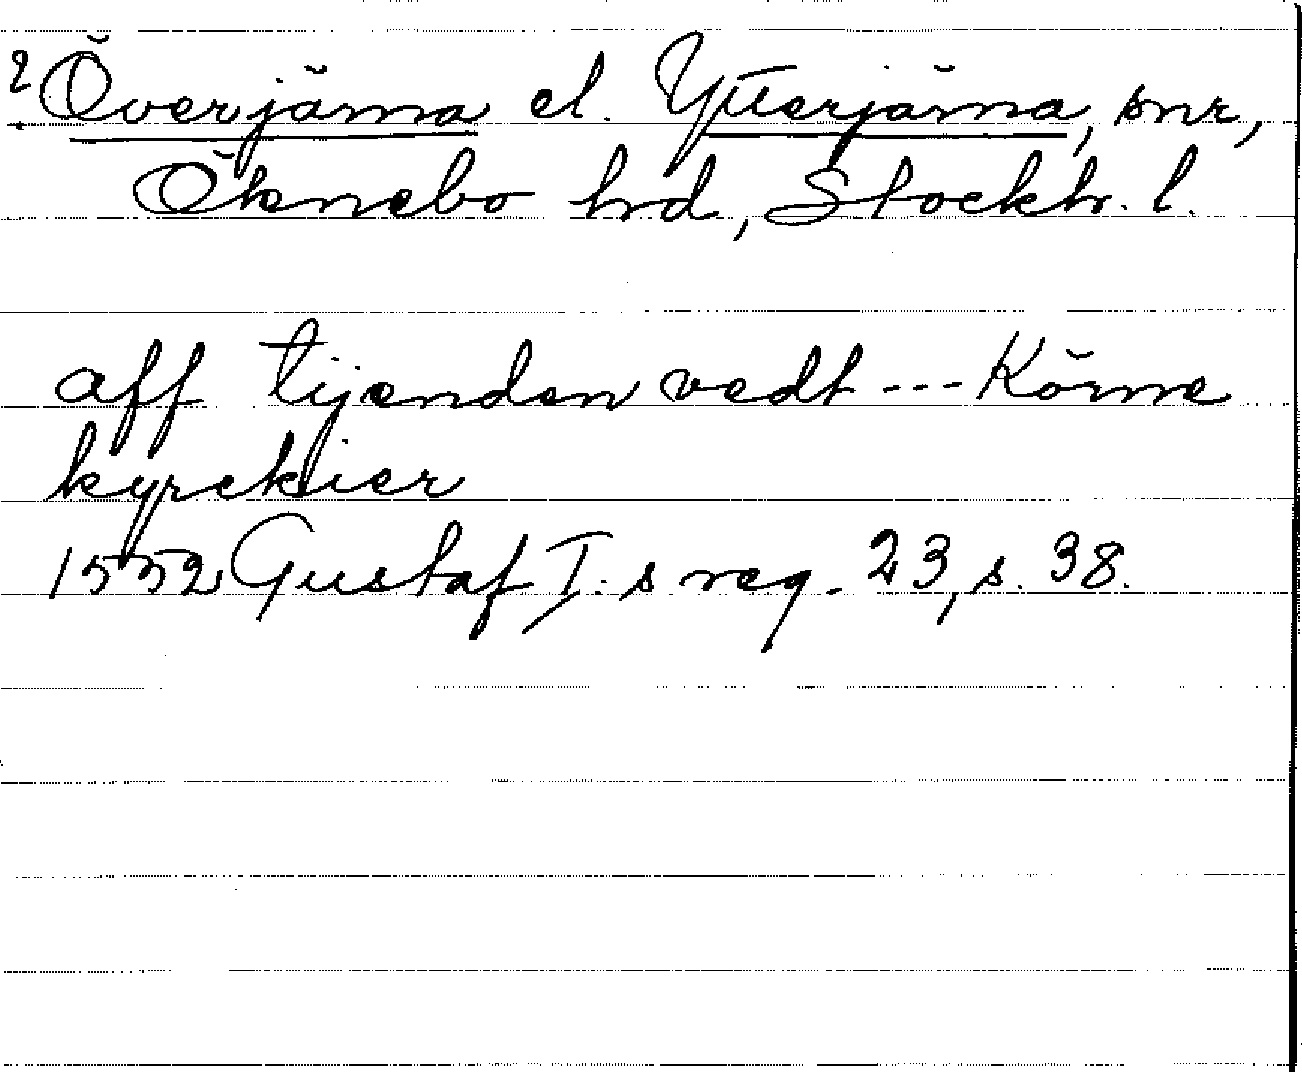 ? Överjärna el. Ytterjärna, snr,
Öknebo hrd, Stockh. l.
aff tijenden vedt --- Körne
kyrekier
1552 Gustaf I:s reg. 23, s. 38.